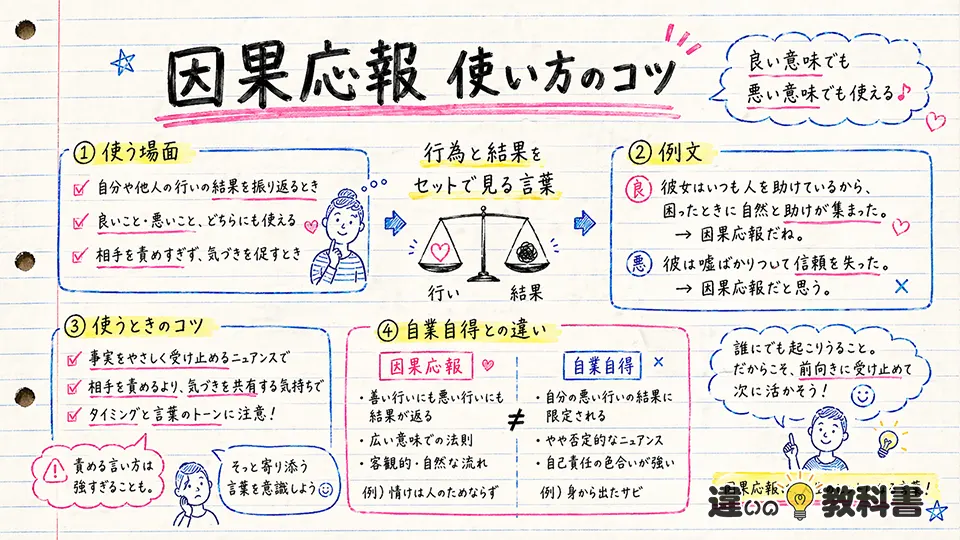 因果応報 使い方のコツ
良い意味でも
悪い意味でも使える♪
① 使う場面
自分や他人の行いの結果を振り返るとき
良いこと・悪いこと、どちらにも使える
相手を責めすぎず、気づきを促すとき
行為と結果を
セットで見る言葉
行い
結果
② 例文
良 彼女はいつも人を助けているから、
困ったときに自然と助けが集まった。
→ 因果応報だね。
悪 彼は嘘ばかりついて信頼を失った。
→ 因果応報だと思う。
③ 使うときのコツ
事実をやさしく受け止めるニュアンスで
相手を責めるより、気づきを共有する気持ちで
タイミングと言葉のトーンに注意！
責める言い方は
強すぎることも。
そっと寄り添う
言葉を意識しよう
④ 自業自得との違い
因果応報
・善い行いにも悪い行いにも
結果が返る
・広い意味での法則
・客観的・自然な流れ
例）情けは人のためならず
≠
自業自得
・自分の悪い行いの結果に
限定される
・やや否定的なニュアンス
・自己責任の色合いが強い
例）身から出たサビ
誰にでも起こりうること。
だからこそ、前向きに受け止めて
次に活かそう！
因果応報
言葉！
違いの教科書